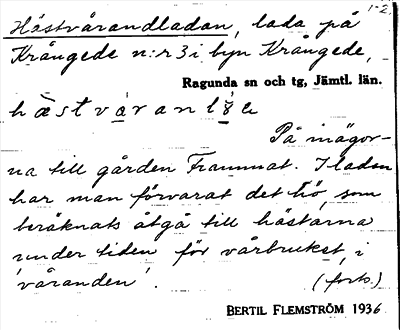 1-2
Hästvårandladan, lada på
Krångede n:r 3 i byn Krångede,
Ragunda sn och tg, Jämtl. län.
På inägor-
na till gården Frammat. I ladan
har man förvarat det hö, som
beräknats åtgå till hästarna
under tiden för vårbruket, i
'våranden'.
(forts.)
BERTIL FLEMSTRÖM 1936